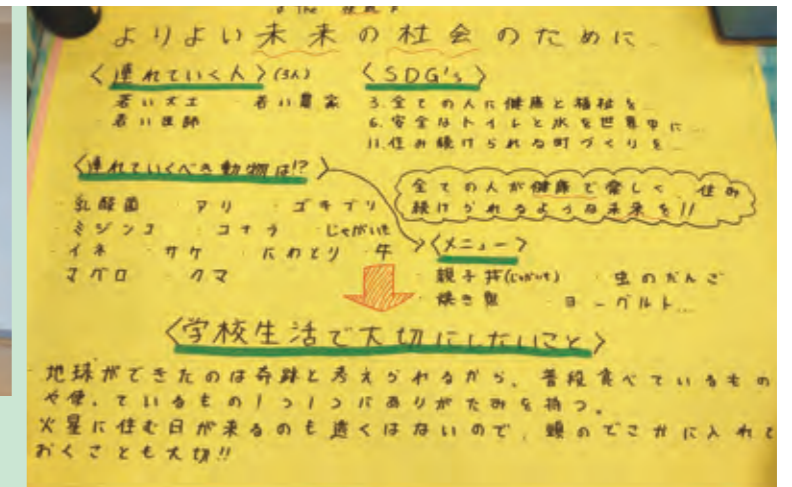 よりよい未来の社会のために…
〈連れていく人〉(3人)
・若い大工 ・若い農家
・若い医師
〈SDG's〉
3.全ての人に健康と福祉を…
6.安全なトイレと水を世界中に…
11.住み続けられる町づくりを…
〈連れていくべき動物は!?〉
・乳酸菌 ・アリ ・ゴキブリ
・ミジンコ ・コナラ ・じゃがいも
・イネ ・サケ ・にわとり ・牛
マグロ ・クマ
全ての人が健康で楽しく、住み
続けられるような未来を!!
〈メニュー〉
・親子丼(じゃがいも) ・虫のだんご
・焼き魚 ・ヨーグルト…
〈学校生活で大切にしたいこと〉
・地球ができたのは奇跡と考えられるから、普段食べているもの
や使っているもの1つ1つにありがたみを持つ。
火星に住む日が来るのも遠くはないので、頭のどこかに入れて
おくことも大切!!